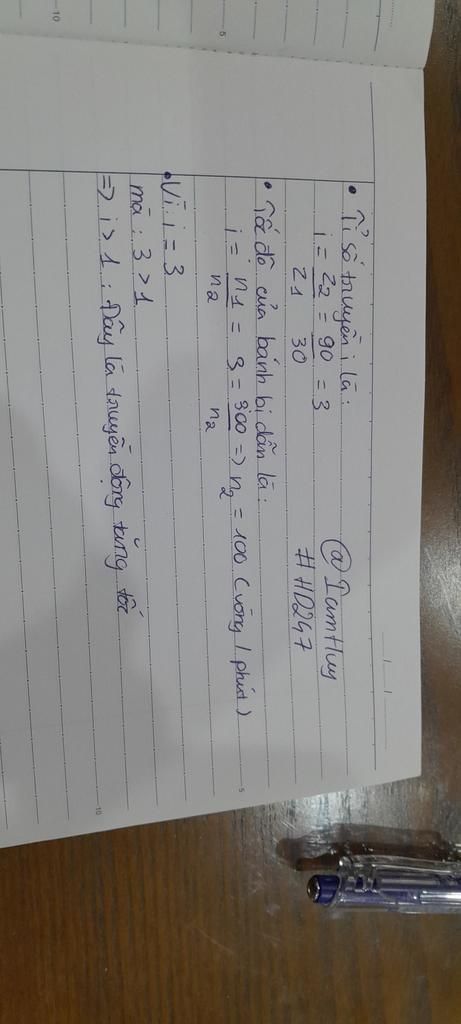 • Tỉ số truyền i là:
i = Z2/Z1 = 90/30 = 3
@IamHuy
#HD247
• Tốc độ của bánh bị dẫn là:
i = n1/n2 = 3 = 300/n2 => n2 = 100 (vòng / phút)
• Vì: i = 3
mà: 3 > 1
=> i > 1 : Đây là truyền động tăng tốc
5
10
5
10